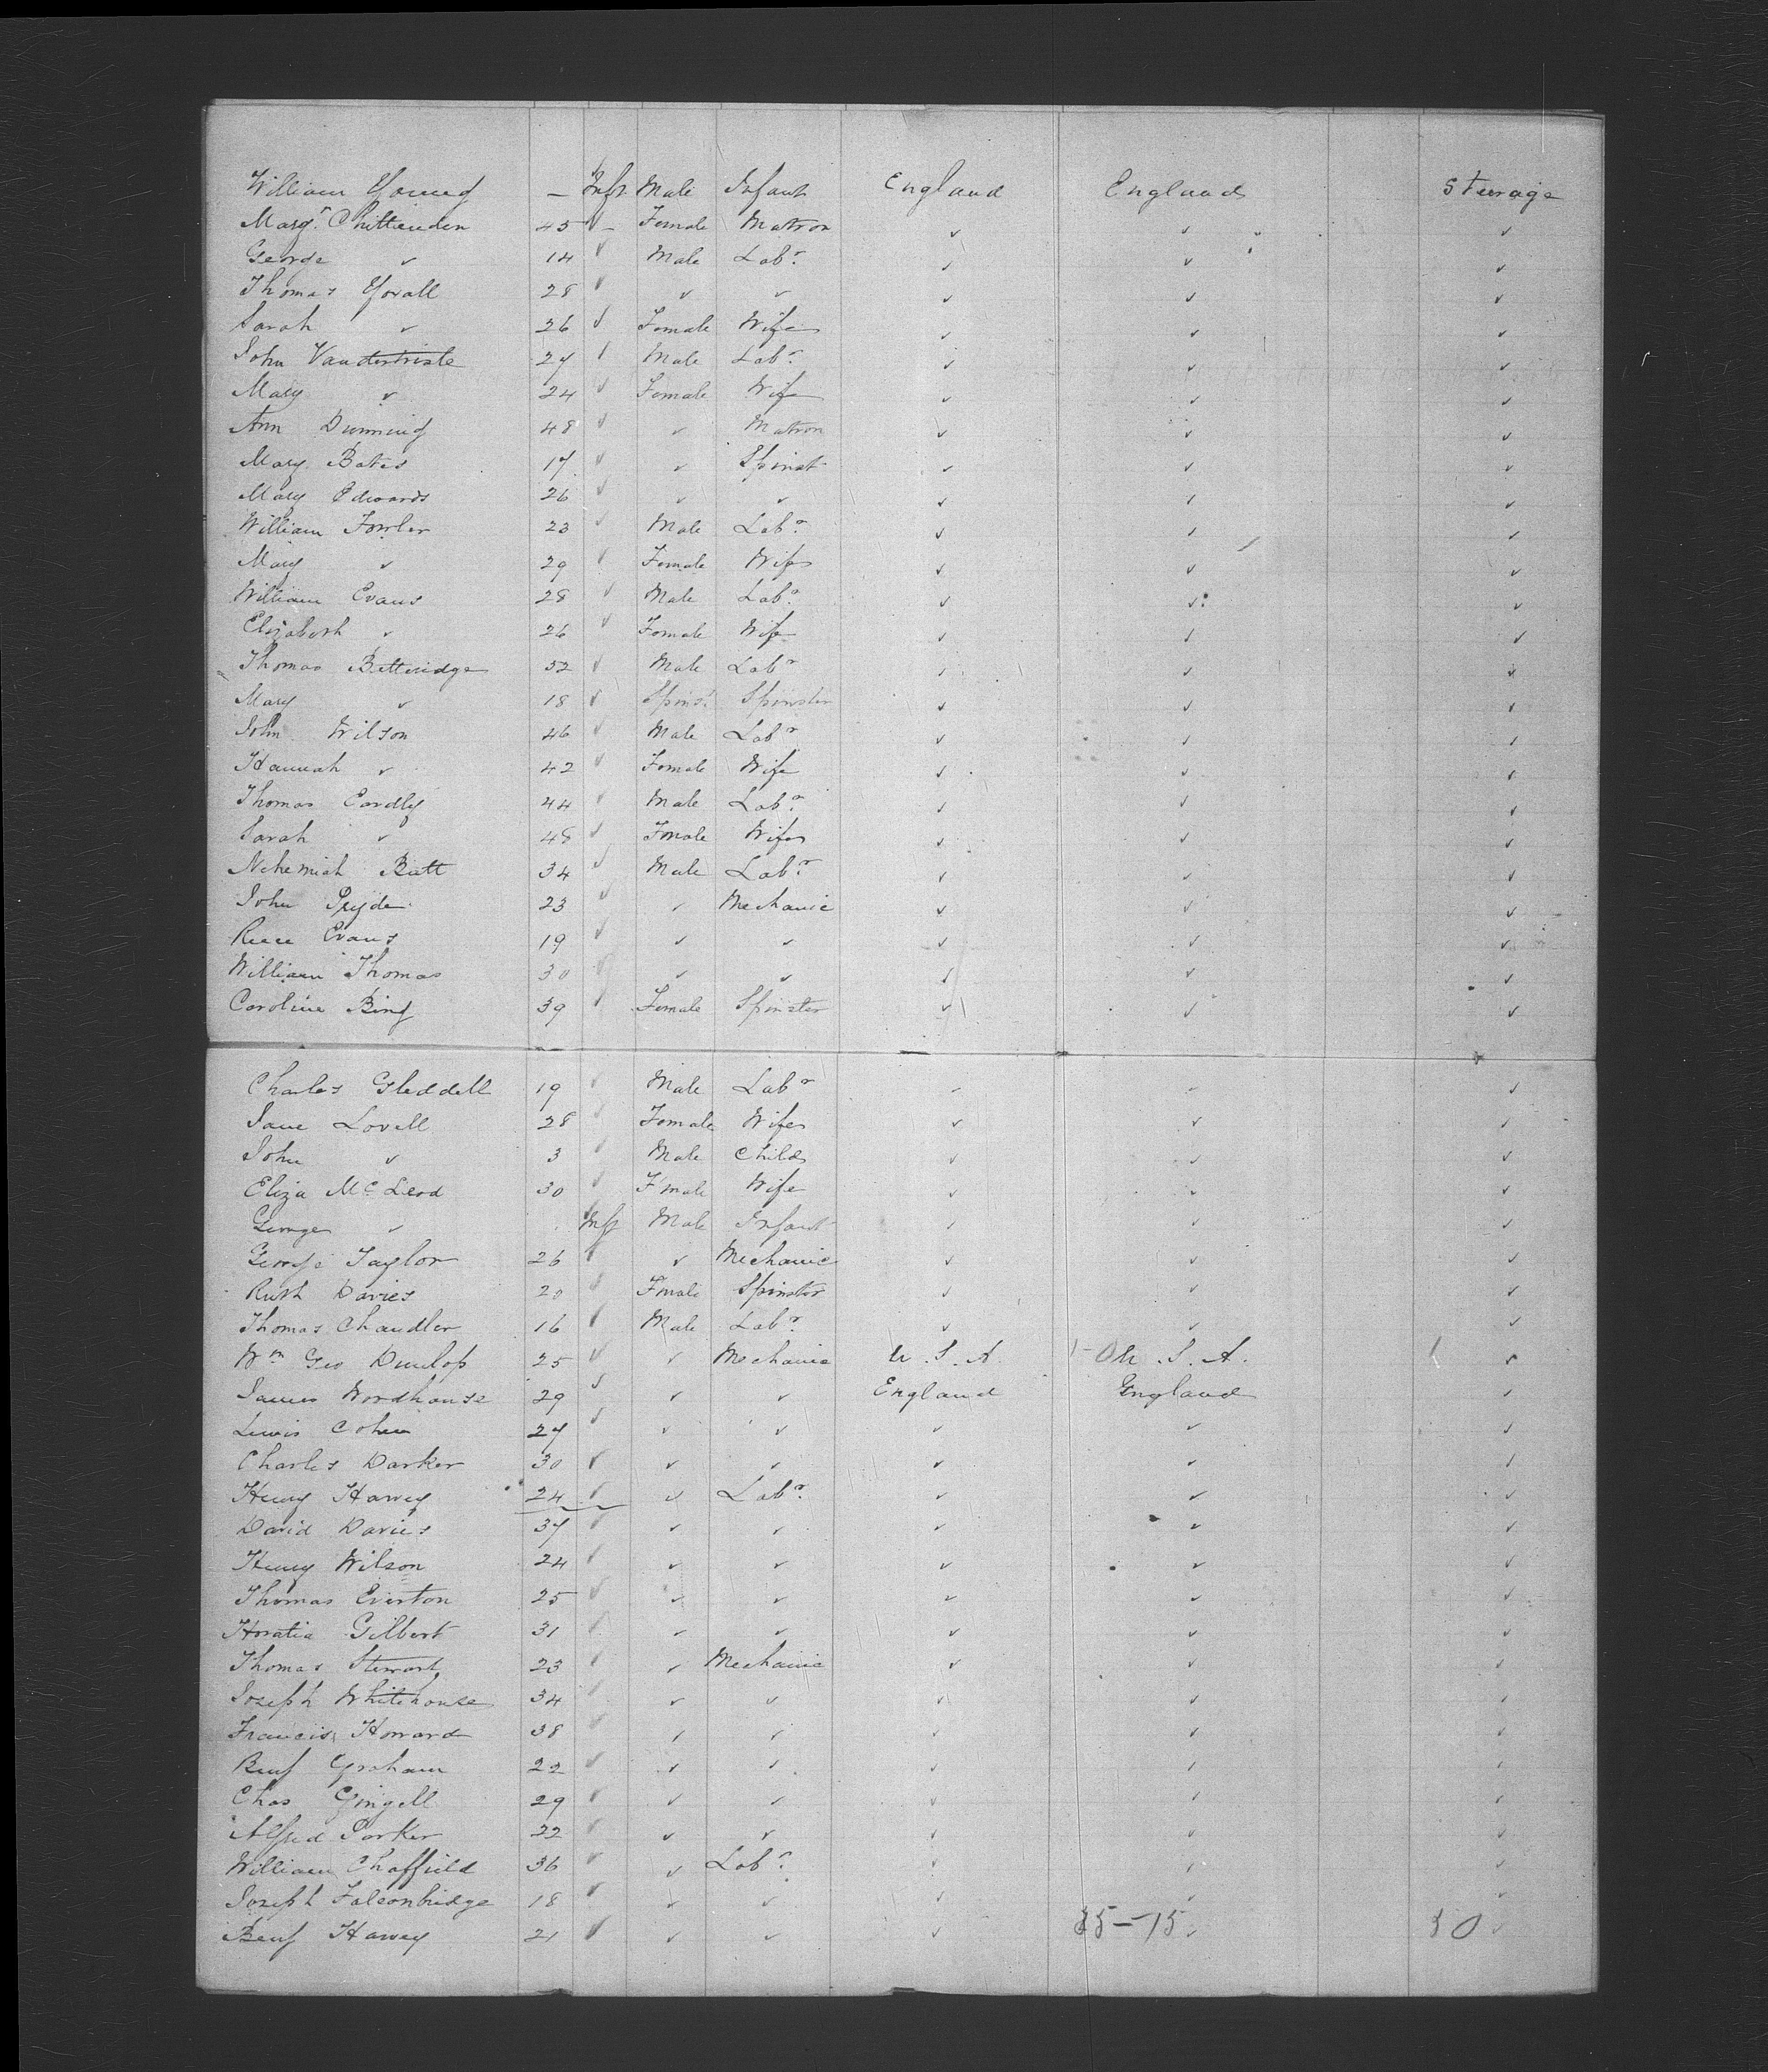 William Young — Inft Male Infant England England Steerage
Margt. Chittenden 45 ✓ – Female Matron ✓ ✓ ✓
George ✓ 14 ✓ Male Labr. ✓ ✓ ✓
Thomas Yoxall 28 ✓ ✓ ✓ ✓ ✓ ✓
Sarah ✓ 26 ✓ Female Wife ✓ ✓ ✓
John 27 ✓ Male Labr. ✓ ✓ ✓
Mary ✓ 24 ✓ Female Wife ✓ ✓ ✓
Ann Dunning 48 ✓ ✓ Matron ✓ ✓ ✓
Mary Bates 17 ✓ ✓ Spinst ✓ ✓ ✓
Mary Edwards 26 ✓ ✓ ✓ ✓ ✓ ✓
William Fowler 23 ✓ Male Labr. ✓ ✓ ✓
Mary ✓ 29 ✓ Female Wife ✓ ✓ ✓
William Evans 28 ✓ Male Labr. ✓ ✓ ✓
Elizabeth ✓ 26 ✓ Female Wife ✓ ✓ ✓
Thomas Betteridge 52 ✓ Male Labr ✓ ✓ ✓
Mary ✓ 18 ✓ Spinst Spinster ✓ ✓ ✓
John Wilson 46 ✓ Male Labr ✓ ✓ ✓
Hannah ✓ 42 ✓ Female Wife ✓ ✓ ✓
Thomas Eardly 44 ✓ Male Labr. ✓ ✓ ✓
Sarah ✓ 48 ✓ Female Wife ✓ ✓ ✓
Nehemiah Batt 34 ✓ Male Labr. ✓ ✓ ✓
John Pryde 23 ✓ ✓ Mechanic ✓ ✓ ✓
Reece Evans 19 ✓ ✓ ✓ ✓ ✓ ✓
William Thomas 30 ✓ ✓ ✓ ✓ ✓ ✓
Caroline Bing 39 ✓ Female Spinster ✓ ✓ ✓
Charles Gleddell 19 ✓ Male Labr ✓ ✓ ✓
Jane Lovell 28 ✓ Female Wife ✓ ✓ ✓
John ✓ 3 ✓ Male Child ✓ ✓ ✓
Eliza McLeod 30 ✓ Female Wife ✓ ✓ ✓
George ✓ Inft Male Infant ✓ ✓ ✓
George Taylor 26 ✓ ✓ Mechanic ✓ ✓ ✓
Ruth Davies 20 ✓ Female Spinster ✓ ✓ ✓
Thomas Chandler 16 ✓ Male Labr. ✓ ✓ ✓
Wm Geo Dunlop 25 ✓ ✓ Mechanic U.S.A. 1-0 U.S.A. 1 ✓
James Woodhouse 29 ✓ ✓ ✓ England England ✓
Lewis Cohen 27 ✓ ✓ ✓ ✓ ✓ ✓
Charles Darker 30 ✓ ✓ ✓ ✓ ✓ ✓
Henry Harvey 24 ✓ ✓ Labr. ✓ ✓ ✓
David Davies 37 ✓ ✓ ✓ ✓ ✓ ✓
Henry Wilson 24 ✓ ✓ ✓ ✓ ✓ ✓
Thomas Everton 25 ✓ ✓ ✓ ✓ ✓ ✓
Horatio Gilbert 31 ✓ ✓ ✓ ✓ ✓ ✓
Thomas Stewart 23 ✓ ✓ Mechanic ✓ ✓ ✓
Joseph Whitehouse 34 ✓ ✓ ✓ ✓ ✓ ✓
Francis Howard 38 ✓ ✓ ✓ ✓ ✓ ✓
Benj Graham 22 ✓ ✓ ✓ ✓ ✓ ✓
Chas Gingell 29 ✓ ✓ ✓ ✓ ✓ ✓
Alfred Parker 22 ✓ ✓ ✓ ✓ ✓ ✓
William Chaffield 36 ✓ ✓ Labr. ✓ ✓ ✓
Joseph Falconbridge 18 ✓ ✓ ✓ ✓ ✓ ✓
Benj Harvey 21 ✓ ✓ ✓ ✓ 35–15 ✓ 50 ✓